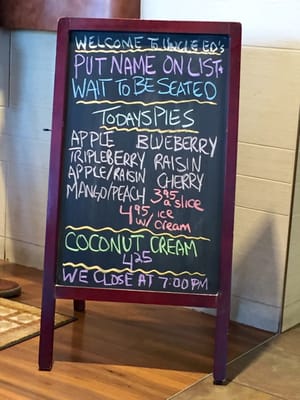 WELCOME TO UNCLE ED'S
PUT NAME ON LIST
WAIT TO BE SEATED
TODAYS PIES
APPLE BLUEBERRY
TRIPLEBERRY RAISIN
APPLE/RAISIN CHERRY
MANGO/PEACH 3.95 a slice
4.95 w/ ice cream
COCONUT CREAM
4.25
WE CLOSE AT 7:00 PM